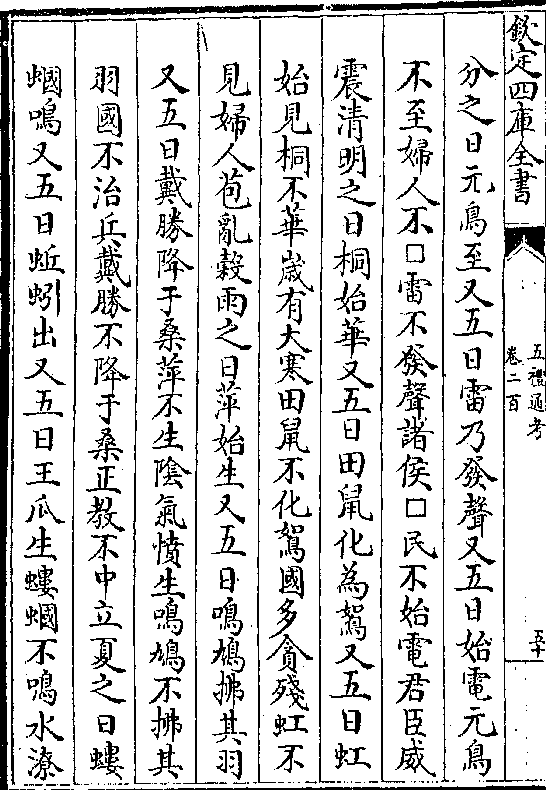 欽定四庫全書
五禮通考
卷二百
五十
分之日元鳥至又五日雷乃發聲又五日始電元鳥
不至婦人不□雷不發聲諸侯□民不始電君臣威
震清明之日桐始華又五日田鼠化為鴽又五日虹
始見桐不華歲有大寒田鼠不化鴽國多貪殘虹不
見婦人苞亂穀雨之日萍始生又五日鳴鳩拂其羽
又五日戴勝降于桑萍不生陰氣憤生鳴鳩不拂其
羽國不治兵戴勝不降于桑正教不中立夏之日螻
蟈鳴又五日蚯蚓出又五日王瓜生螻蟈不鳴水潦